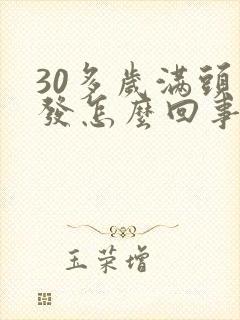 30多歲滿頭
發怎麼回事
玉荣增